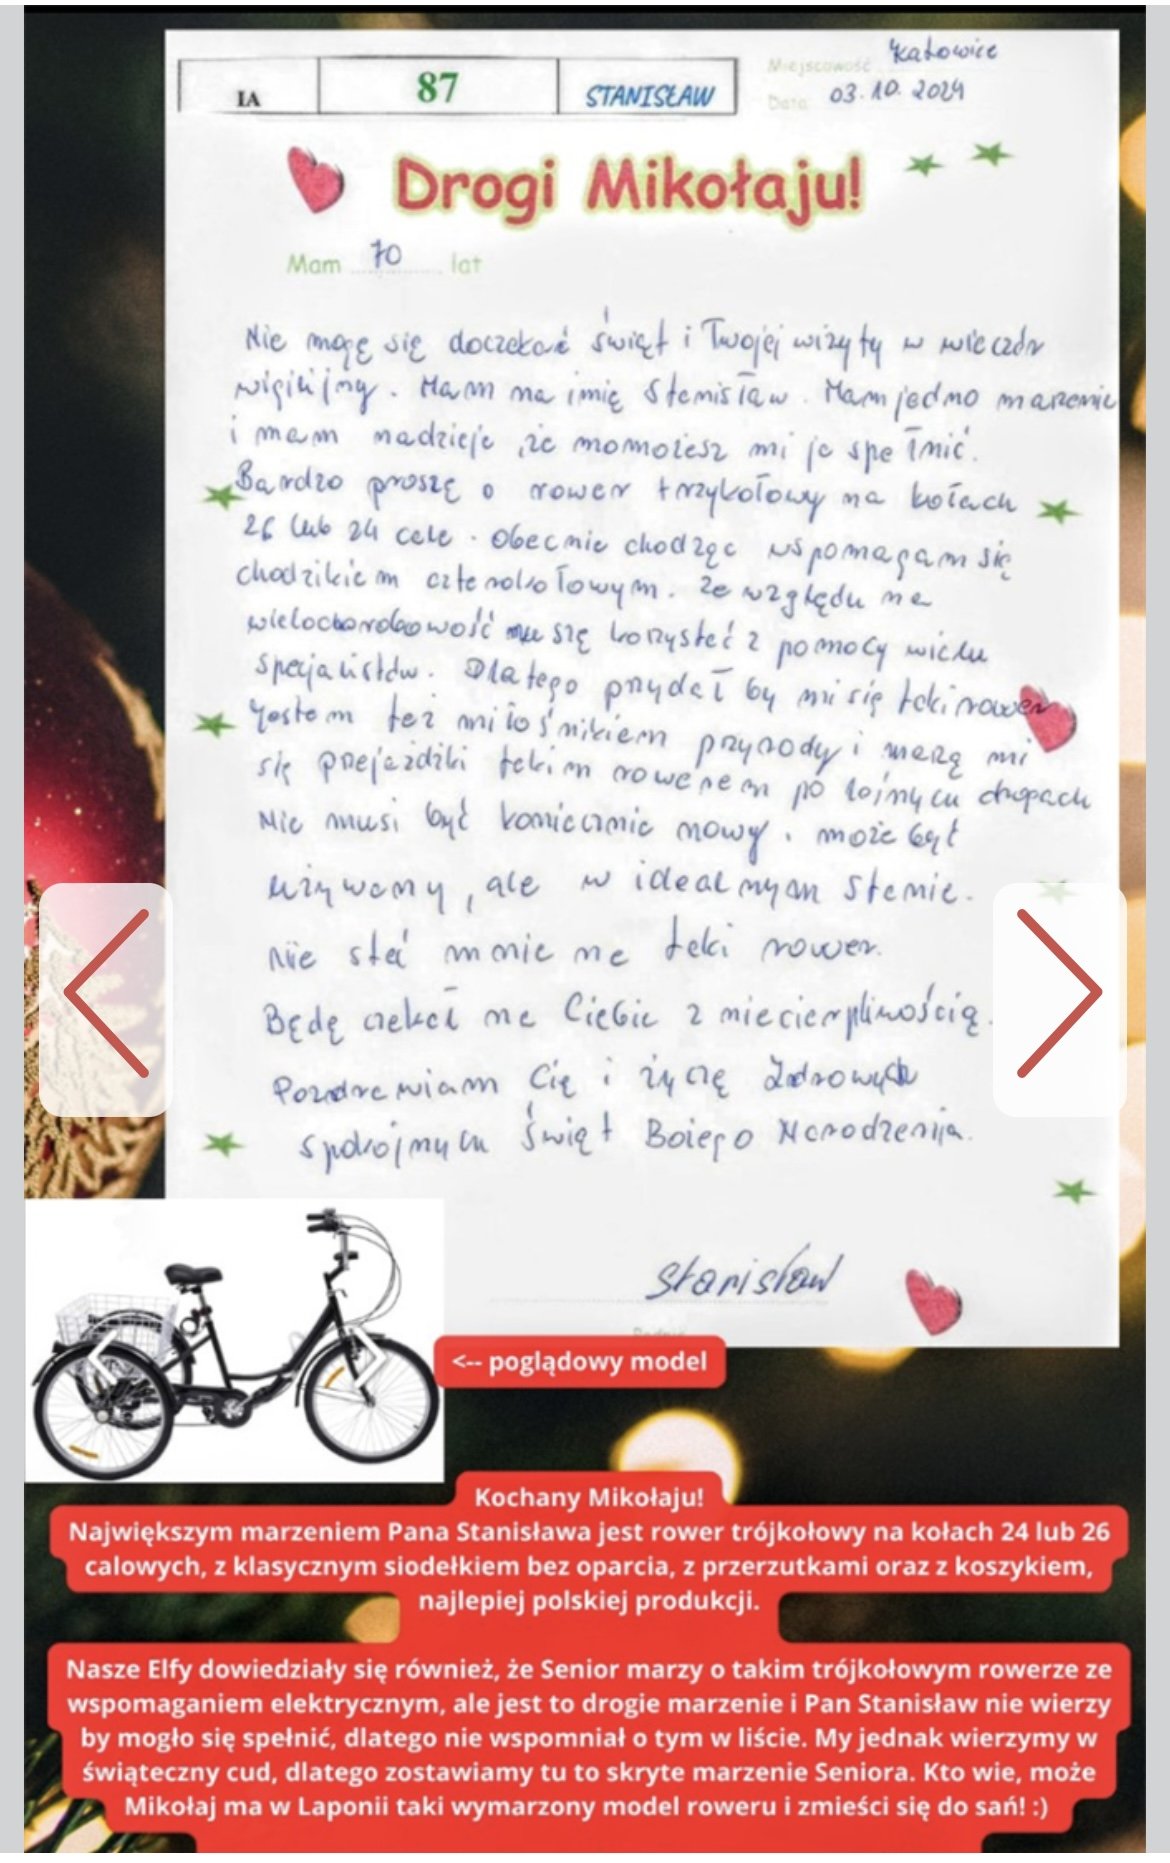 IA
87
STANISŁAW
Miejscowość Katowice
Data 03.10.2024
Drogi Mikołaju!
Mam 70 lat
Nie mogę się doczekać świąt i Twojej wizyty w wieczór
wigilijny. Mam na imię Stanisław. Mam jedno marzenie
i mam nadzieję, że momożesz mi je spełnić.
Bardzo proszę o rower trzykołowy na kołach
26 lub 24 cale. Obecnie chodząc wspomagam się
chodzikiem czterokołowym. Ze względu na
wielochorobowość muszę korzystać z pomocy wielu
specjalistów. Dlatego przydał by mi się taki rower
Jestem też miłośnikiem przyrody i marzą mi
się przejażdżki takim rowerem po leśnych drogach
Nie musi być koniecznie nowy, może być
używany, ale w idealnym stanie.
nie stać mnie na taki rower.
Będę czekał na Ciebie z niecierpliwością.
Pozdrawiam Cię i życzę Zdrowych
spokojnych świąt Bożego Narodzenia.
Stanisław
<-- poglądowy model
Kochany Mikołaju!
Największym marzeniem Pana Stanisława jest rower trójkołowy na kołach 24 lub 26
calowych, z klasycznym siodełkiem bez oparcia, z przerzutkami oraz z koszykiem,
najlepiej polskiej produkcji.
Nasze Elfy dowiedziały się również, że Senior marzy o takim trójkołowym rowerze ze
wspomaganiem elektrycznym, ale jest to drogie marzenie i Pan Stanisław nie wierzy
by mogło się spełnić, dlatego nie wspomniał o tym w liście. My jednak wierzymy w
świąteczny cud, dlatego zostawiamy tu to skryte marzenie Seniora. Kto wie, może
Mikołaj ma w Laponii taki wymarzony model roweru i zmieści się do sań! :)